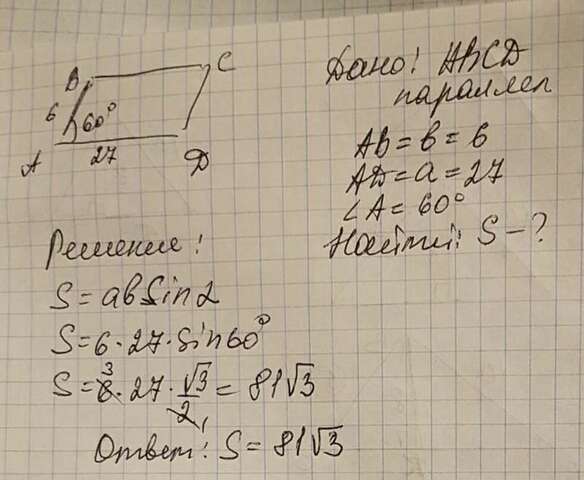 B
C
6
60°
A
27
D
Дано: ABCD
параллел
AB = b = 6
AD = a = 27
∠A = 60°
Найти: S - ?
Решение:
S = ab Sin α
S = 6 · 27 · sin 60°
S = 6̸³ · 27 · √3/2̸₁ = 81√3
Ответ: S = 81√3